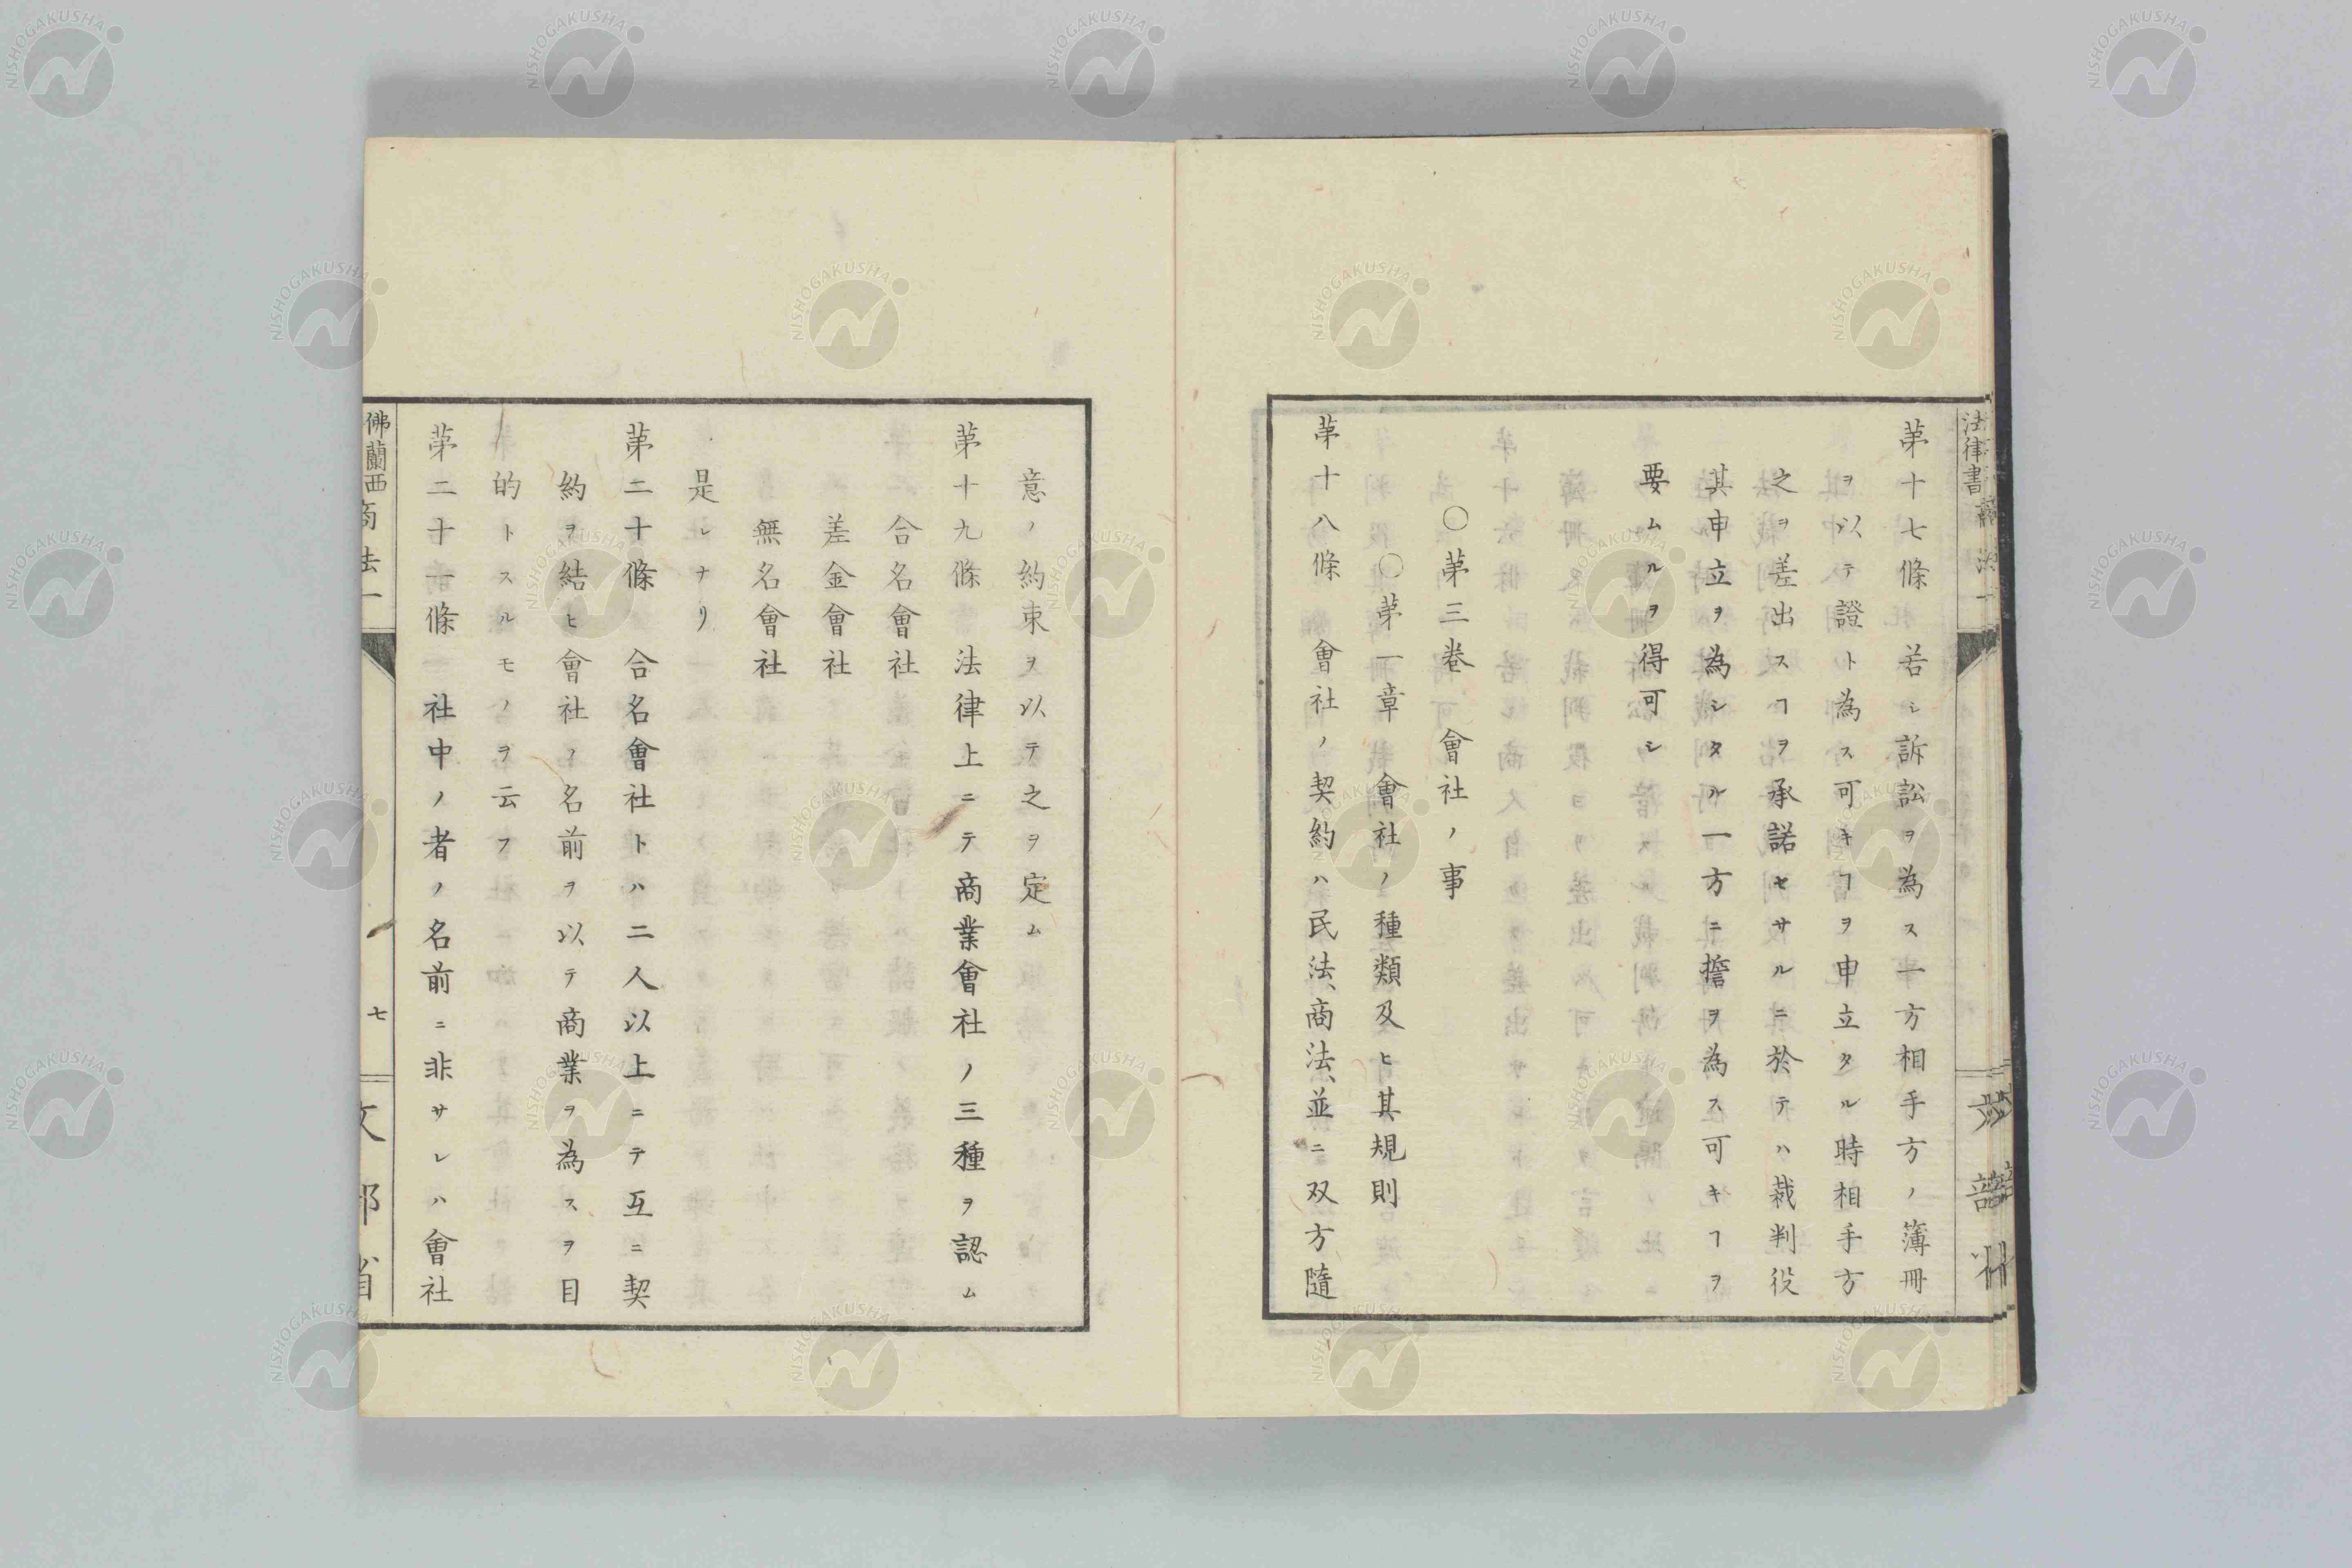 第十七條 若シ訴訟ヲ為ス一方相手方ノ簿冊
ヲ以テ證ト為ス可キヿヲ申立タル時相手方
之ヲ差出スヿヲ承諾セサルニ於テハ裁判役
其申立ヲ為シタル一方ニ擔ヲ為ス可キヿヲ
要ムルヲ得可シ
〇第三巻 會社ノ事
〇第一章 會社ノ種類及ヒ其規則
第十八條 會社ノ契約ハ民法、商法、並ニ双方隨
意ノ約束ヲ以テ之ヲ定ム
第十九條 法律上ニテ商業會社ノ三種ヲ認ム
合名會社
差金會社
無名會社
是レナリ
第二十條 合名會社トハ二人以上ニテ互ニ契
約ヲ結ヒ會社ノ名前ヲ以テ商業ヲ為スヲ目
的トスルモノヲ云フ
第二十一條 社中ノ者ノ名前ニ非サレハ會社
佛蘭西商法一
七
文部省
NISHOGAKUSHA